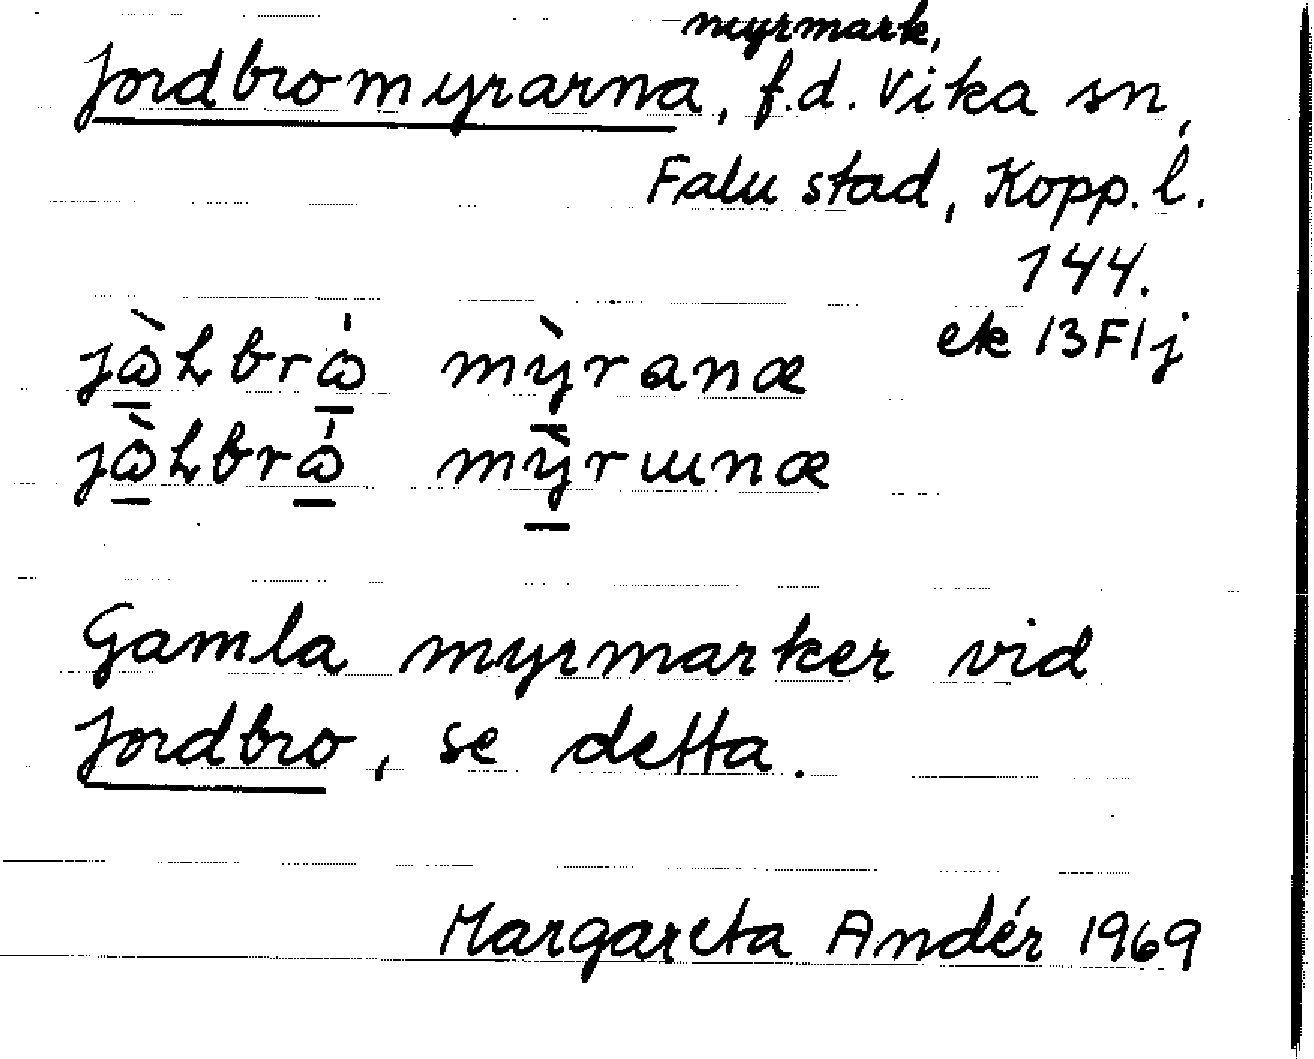 myrmark,
Jordbromyrarna, f.d. Vika sn,
Falu stad, Kopp. l.
144.
ek 13F1j
Gamla myrmarker vid
Jordbro, se detta.
Margareta Andér 1969